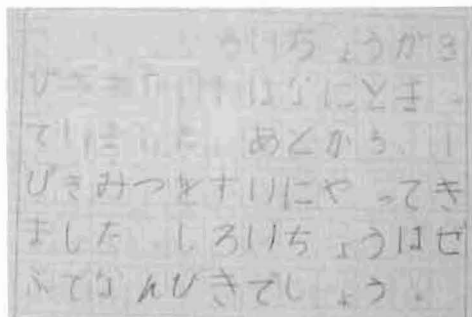 ろいちょうが3
びき きいろいはなにとまっ
ていました。あとから、1
ぴきみつをすいにやってき
ました。しろいちょうはぜ
んぶでなんびきでしょう。